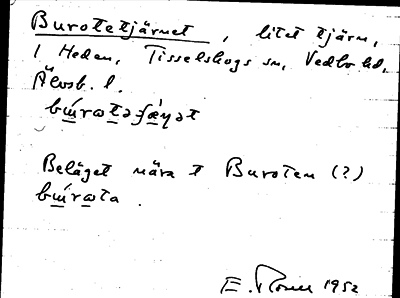 Burotetjärnet, litet tjärn,
1 Heden, Tisselskogs sn, Vedbo hd,
Älvsb. l.
bɯ́rɷtə-ʃæ̀ɳət
Beläget nära t Buroten (?)
bɯ́rɷta.
E. 1952